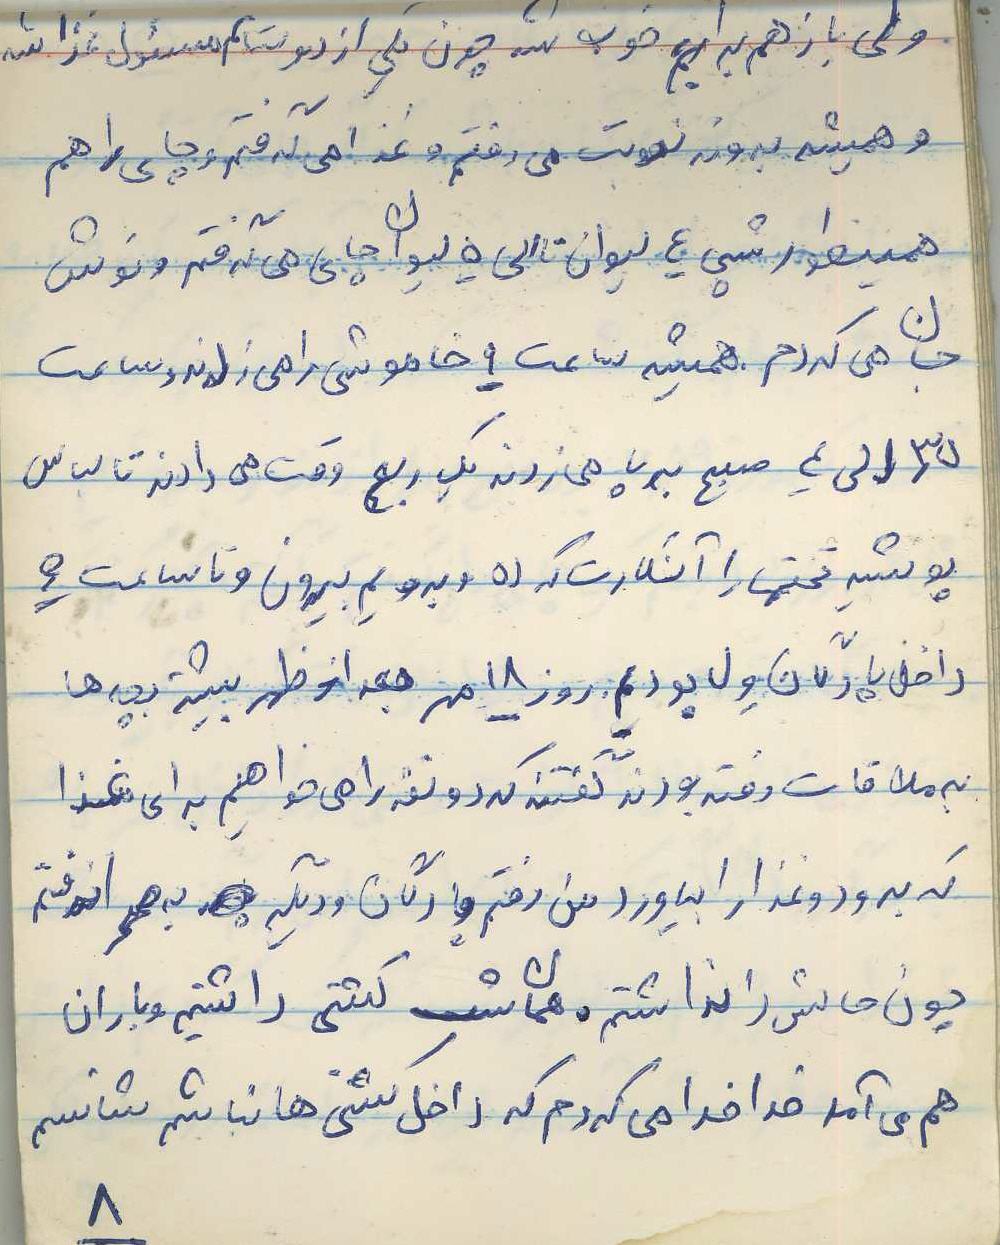 ولی باز هم برایم خوب شد چون یکی از دوستانم مسئول غذا شد
و همیشه بدون نوبت می رفتم و غذا می گرفتم و چای را هم
همینطور شبی ۴ لیوان تا الی ۵ لیوان چای می گرفتم و نوش
جان می کردم. همیشه ساعت ۹ خاموشی را می زدند و ساعت
الی ۴ صبح برپا می زدند یک ربع وقت می دادند تا لباس
پوشیده تختها را آنکارت کرده و برویم بیرون و تا ساعت
داخل پادگان ول بودیم. روز ۱۸ مهر جمعه از ظهر بیشتر بچه ها
به ملاقات رفته بودند گفتند که دو نفر را می خواهیم برای غذا
که برود و غذا را بیاورد من رفتم پادگان و دیگر به هم نرفتم
چون حالش را نداشتم. همان شب گشتی داشتیم و باران
هم می آمد خدا خدا می کردم که داخل گشتی ها نباشم شانسم
۸